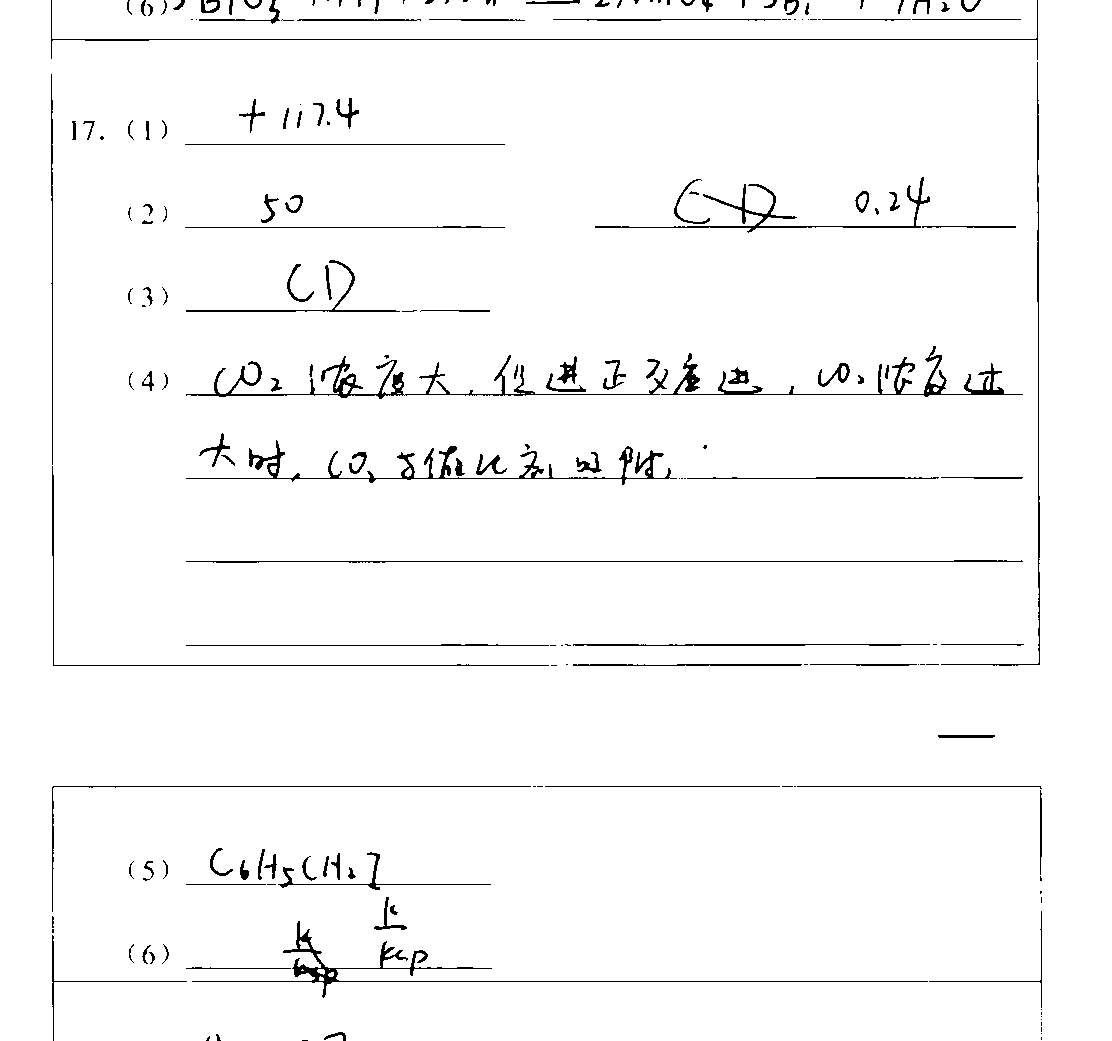 (6)
17. (1) +117.4
(2) 50 0.24
(3) CD
(4) CO₂浓度大,促进正反应进,CO₂浓度过
大时,CO₂与催化剂吸附,
(5) C₆H₅CH₂I
(6) k/kcp